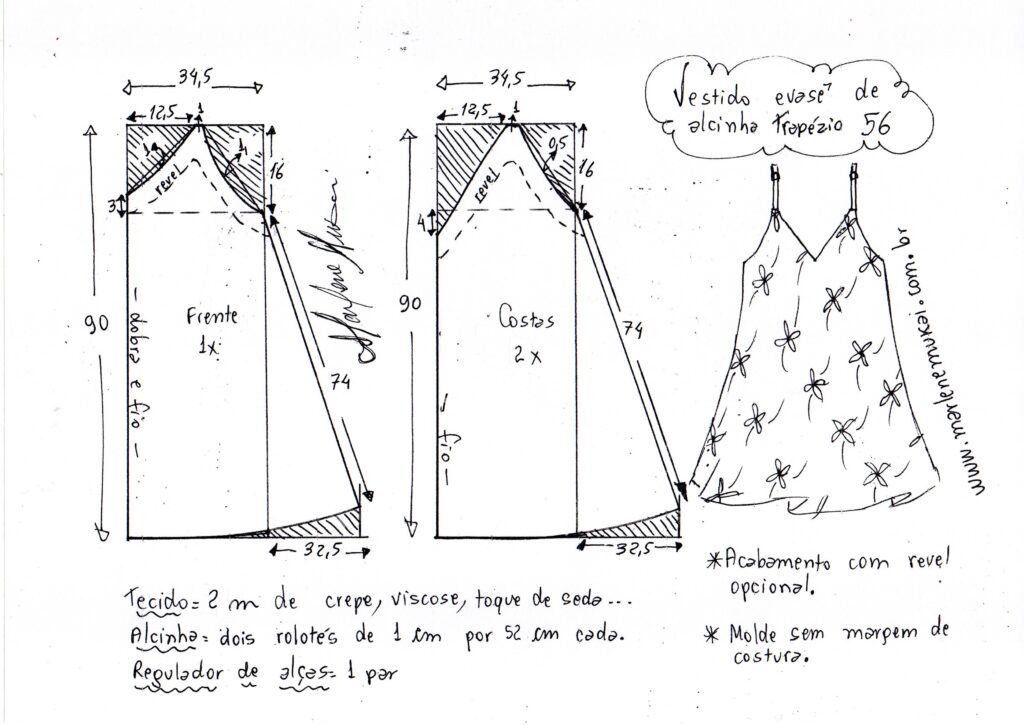 Vestido evasê de
alcinha trapézio 56
34,5
12,5
1
1
4
revel
16
3
90
Frente
1x
dobra e fio
74
32,5
Marlene Mukai
34,5
12,5
1
0,5
revel
16
4
90
Costas
2x
fio
74
32,5
www.marlenemukai.com.br
*Acabamento com revel
opcional.
* Molde sem margem de
costura.
Tecido= 2 m de crepe, viscose, toque de seda...
Alcinha= dois rolotés de 1 cm por 52 cm cada.
Regulador de alças= 1 par